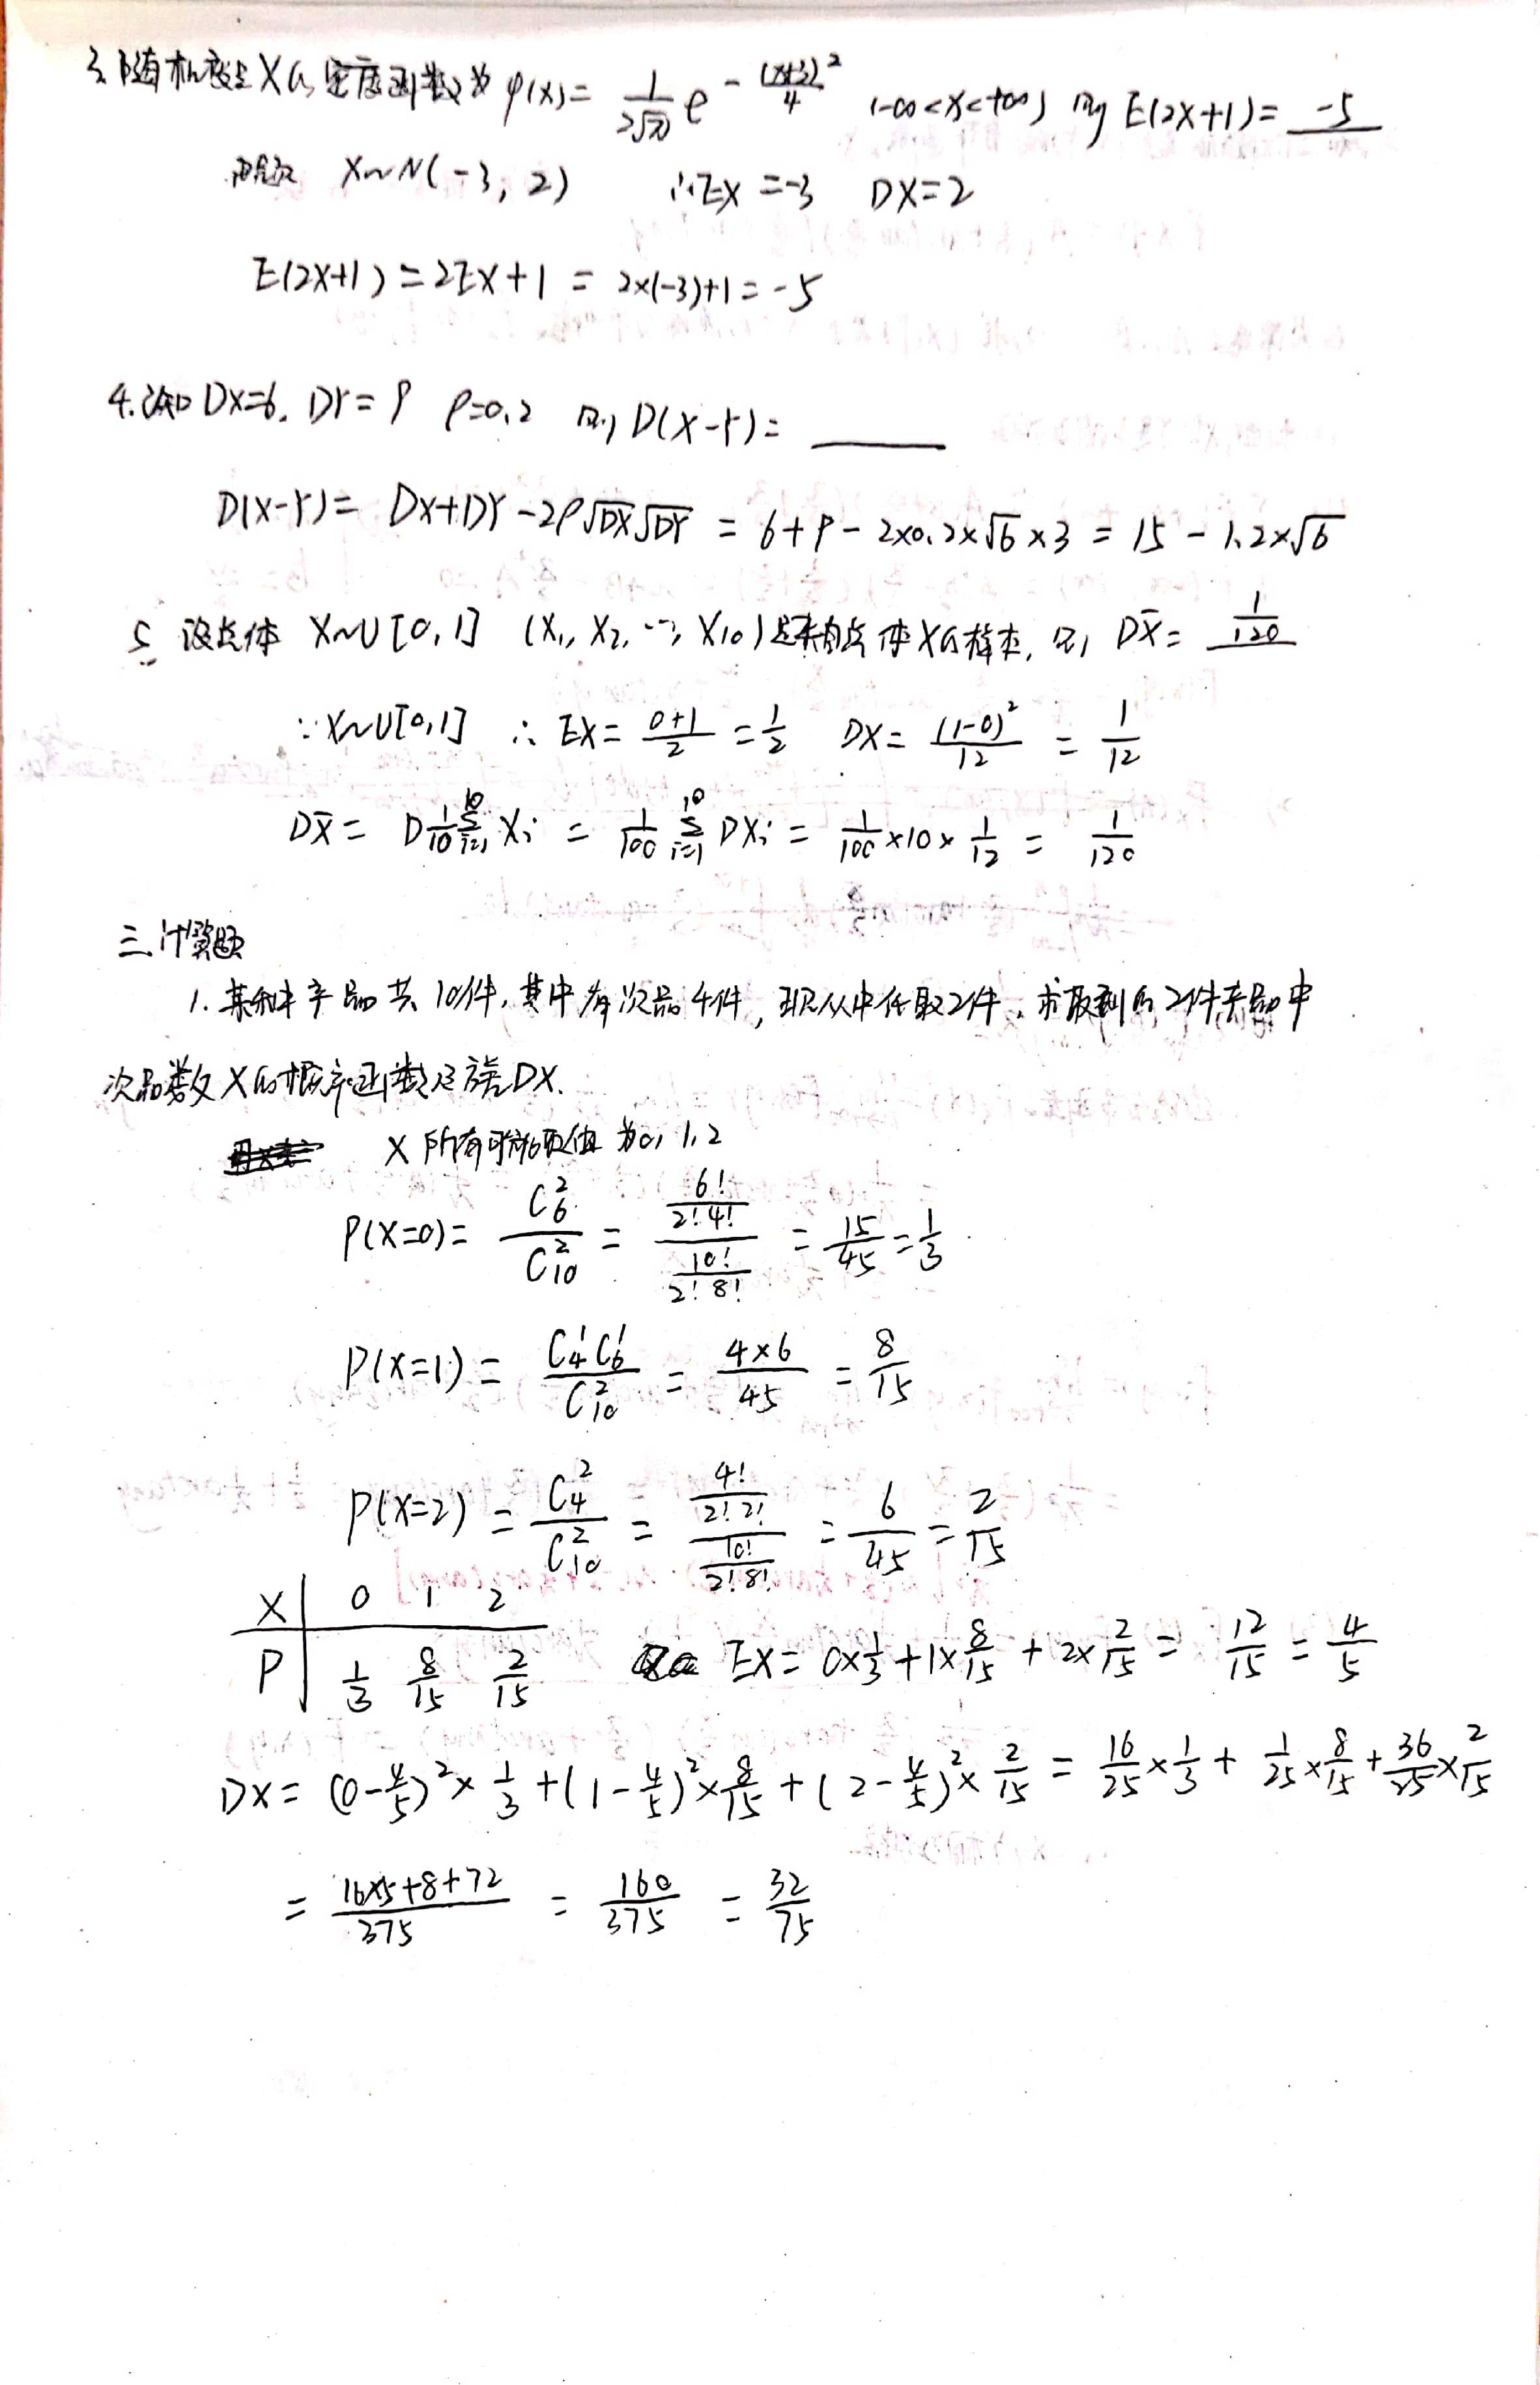 3. 随机变量X的密度函数为 φ(x)= \frac{1}{2\sqrt{π}} e^{-\frac{(x+3)^2}{4}} (-∞<x<+∞) 则 E(2X+1)= -5
由题 X~N(-3, 2) ∴EX=-3 DX=2
E(2X+1)=2EX+1=2×(-3)+1=-5
4. 已知DX=6. DY=9 ρ=0.2 则D(X-Y)= ____
D(X-Y)= DX+DY-2ρ\sqrt{DX}\sqrt{DY} = 6+9-2×0.2×\sqrt{6}×3 = 15-1.2×\sqrt{6}
5. 设总体 X~U[0,1] (X_1, X_2, …, X_{10})是来自总体X的样本, 则 D\bar{X}= \frac{1}{120}
∵X~U[0,1] ∴ EX= \frac{0+1}{2} = \frac{1}{2} DX= \frac{(1-0)^2}{12} = \frac{1}{12}
D\bar{X} = D\frac{1}{10}\sum_{i=1}^{10} X_i = \frac{1}{100}\sum_{i=1}^{10} DX_i = \frac{1}{100}×10×\frac{1}{12} = \frac{1}{120}
三. 计算题
1. 某种产品共10件, 其中有次品4件, 现从中任取2件, 求取到的2件产品中
次品数X的概率函数及方差DX.
X 所有可能取值为0, 1, 2
P(X=0)= \frac{C_6^2}{C_{10}^2} = \frac{\frac{6!}{2!4!}}{\frac{10!}{2!8!}} = \frac{15}{45} = \frac{1}{3}
P(X=1) = \frac{C_4^1 C_6^1}{C_{10}^2} = \frac{4×6}{45} = \frac{8}{15}
P(X=2) = \frac{C_4^2}{C_{10}^2} = \frac{\frac{4!}{2!2!}}{\frac{10!}{2!8!}} = \frac{6}{45} = \frac{2}{15}
X 0 1 2
P \frac{1}{3} \frac{8}{15} \frac{2}{15} EX= 0×\frac{1}{3}+1×\frac{8}{15}+2×\frac{2}{15} = \frac{12}{15} = \frac{4}{5}
DX= (0-\frac{4}{5})^2×\frac{1}{3}+(1-\frac{4}{5})^2×\frac{8}{15}+(2-\frac{4}{5})^2×\frac{2}{15} = \frac{16}{25}×\frac{1}{3}+\frac{1}{25}×\frac{8}{15}+\frac{36}{25}×\frac{2}{15}
= \frac{16×5+8+72}{375} = \frac{160}{375} = \frac{32}{75}